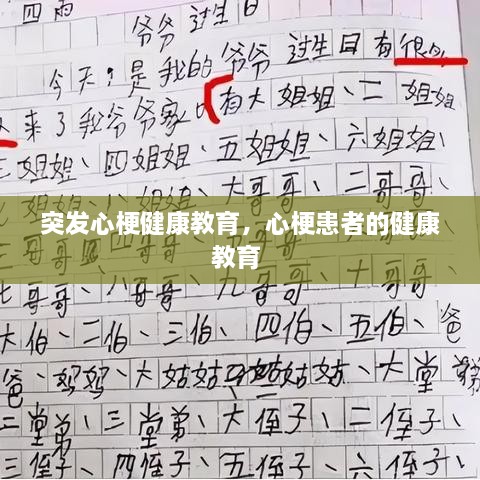 四雨
爷爷过生日
今天,是我的爷爷过生日有很多
人来了我爷爷家(有大姐姐、二姐姐
三姐姐、四姐姐、五姐姐、六姐姐、
大哥哥、二哥哥
突发心梗健康教育，心梗患者的健康
教育
七哥哥、八哥哥、九哥哥、十哥哥、
大伯、二伯、三伯、四伯、五伯、爸
爸、妈妈、大姑姑、二姑姑、大堂弟
二堂弟、三堂弟、大侄子、二侄子
三侄子、四侄子、五侄子、六侄子、